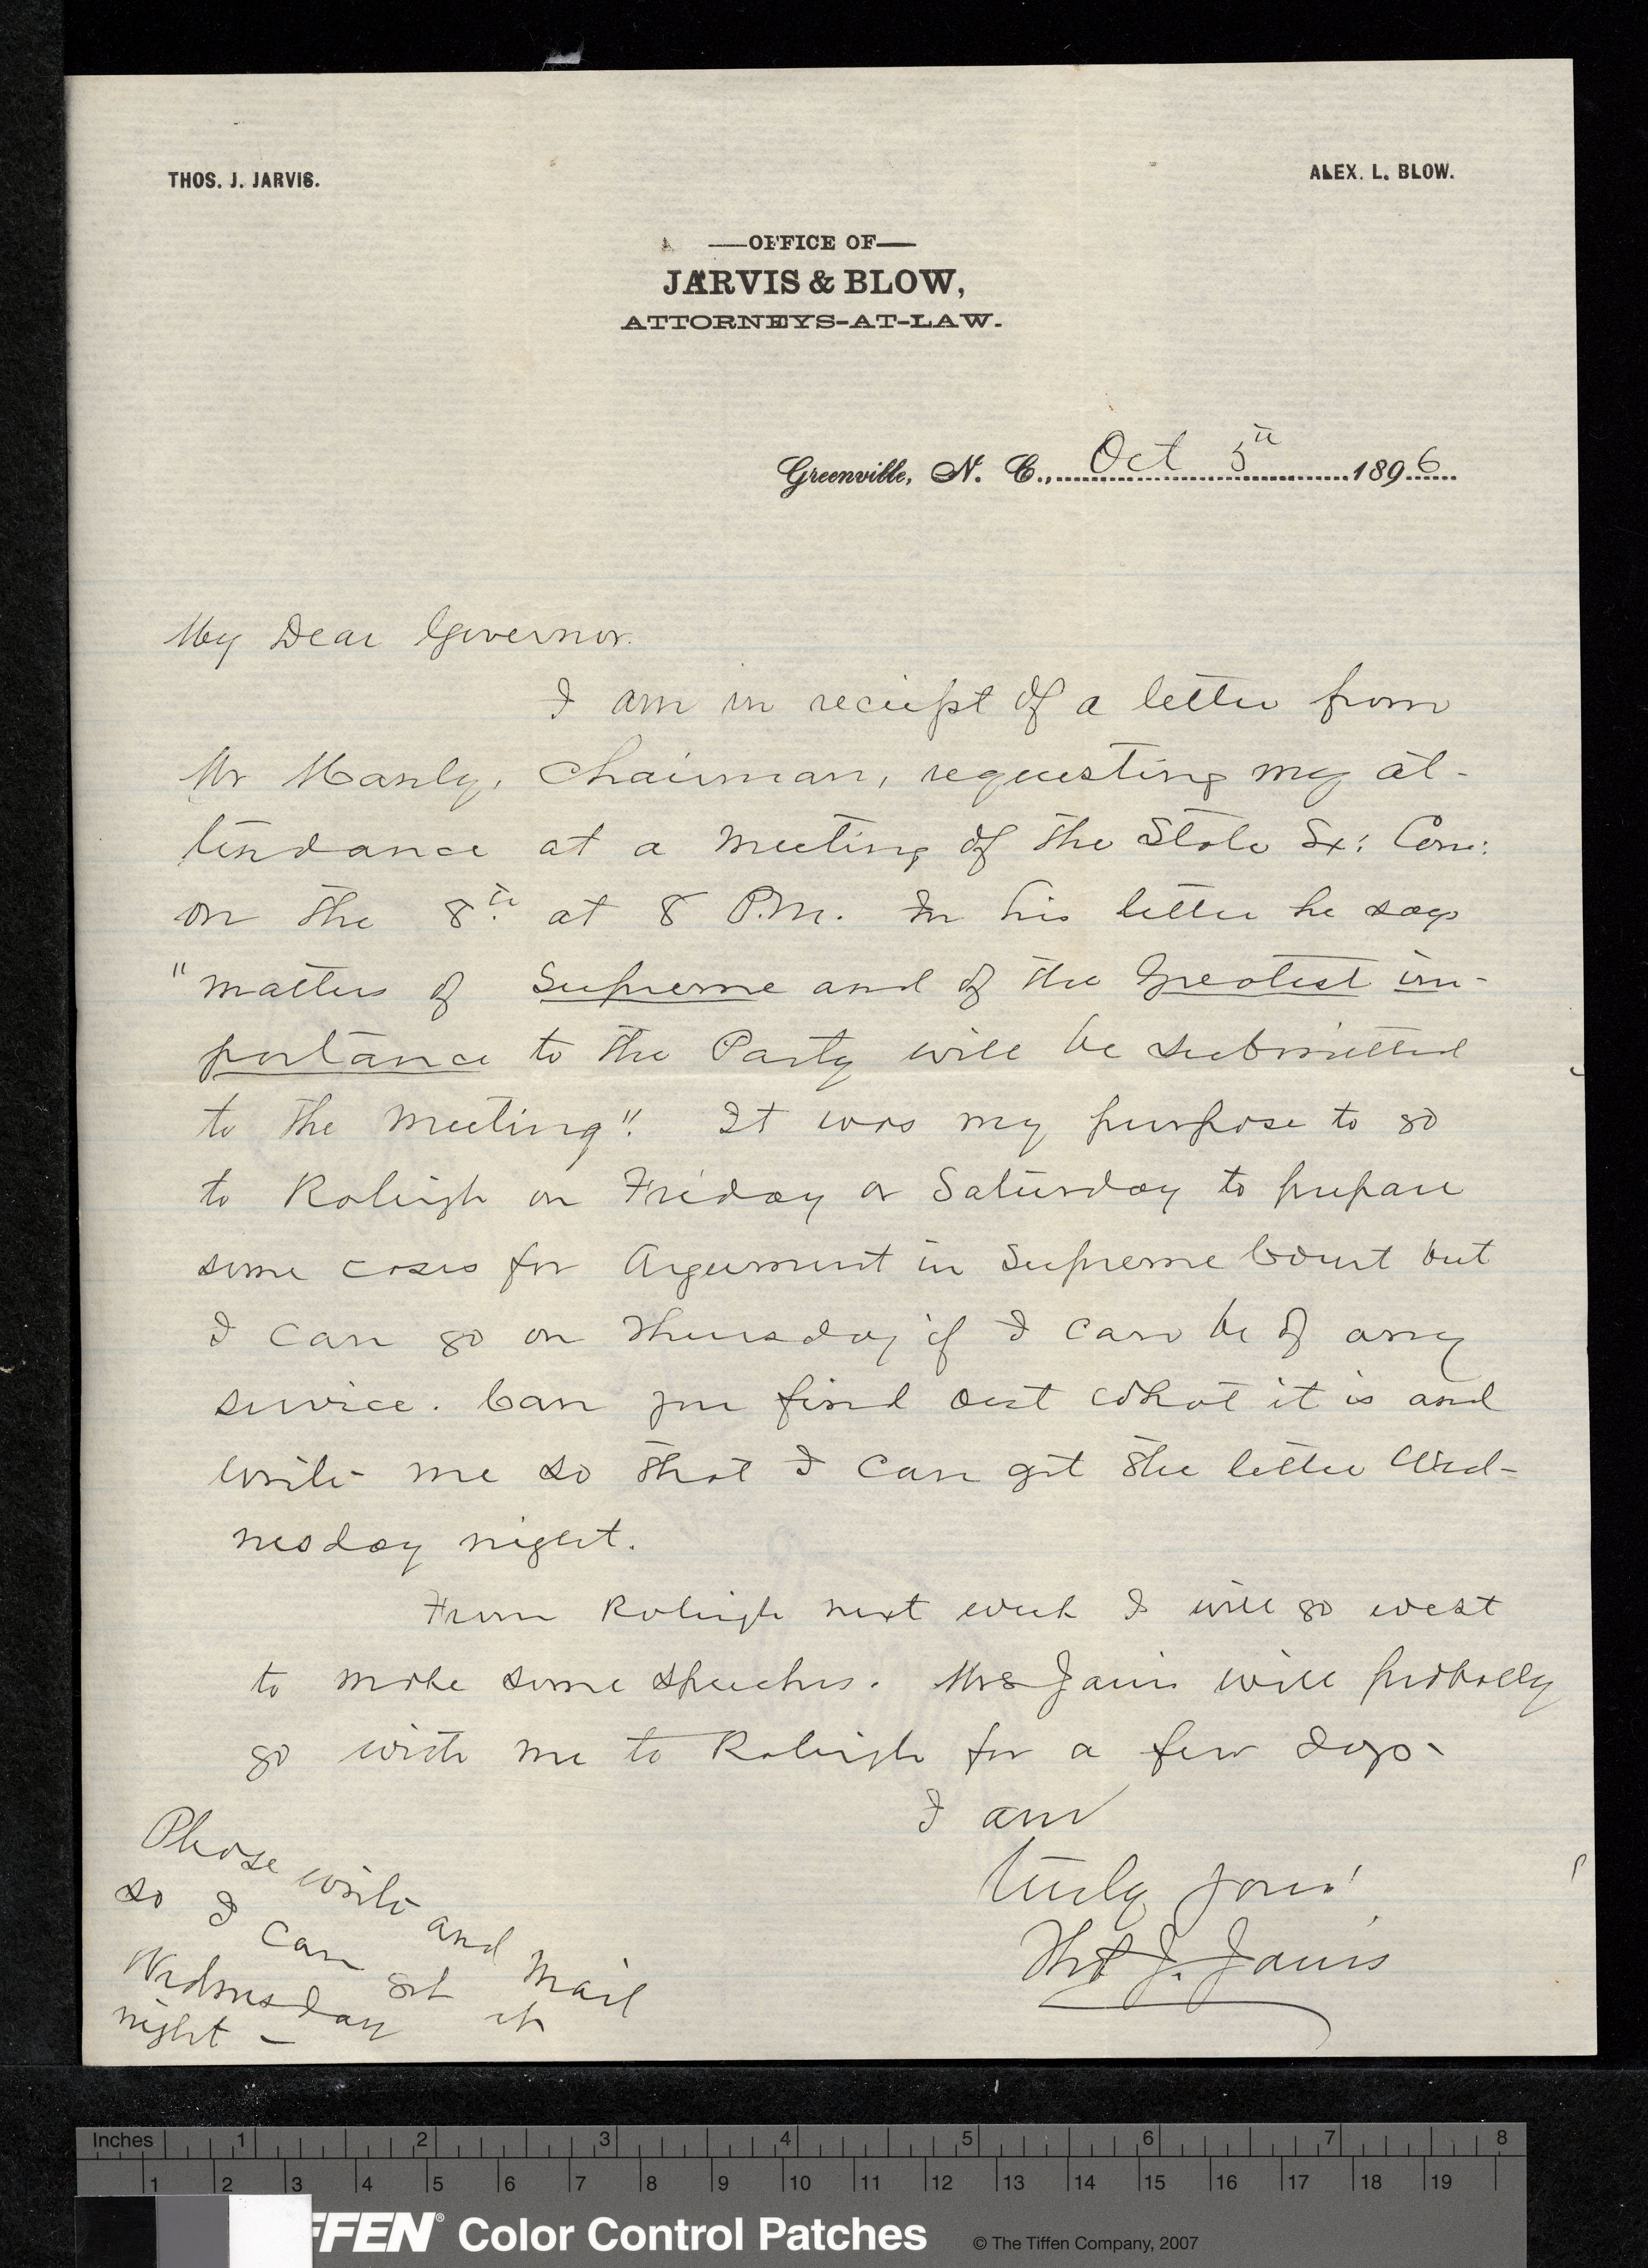 THOS. J. JARVIS.
ALEX. L. BLOW.
—OFFICE OF—
JARVIS & BLOW,
ATTORNEYS-AT-LAW.
Greenville, N. C., Oct 5th 1896
My Dear Governor.
I am in receipt of a letter from
Mr Manly, Chairman, requesting my at-
tendance at a meeting of the State Ex: Com:
on the 8th at 8 P.M. In his letter he says
"matters of Supreme and of the Greatest im-
portance to the Party will be submitted
to the meeting". It was my purpose to go
to Raleigh on Friday or Saturday to prepare
some cases for Argument in Supreme Court but
I can go on Thursday if I can be of any
service. Can you find out what it is and
write me so that I can get the letter Wed-
nesday night.
From Raleigh next week I will go west
to make some speeches. Mrs Jarvis will probally
go with me to Raleigh for a few days-
I am
Truly yours
Thos J. Jarvis
Please write and mail
so I can get it
Wednesday
night —
Inches 1 2 3 4 5 6 7 8
1 2 3 4 5 6 7 8 9 10 11 12 13 14 15 16 17 18 19
FFEN® Color Control Patches © The Tiffen Company, 2007